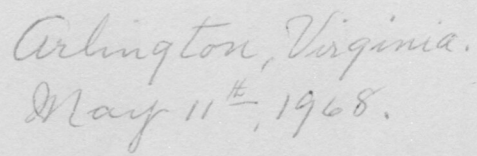 Arlington, Virginia.
May 11th, 1968.